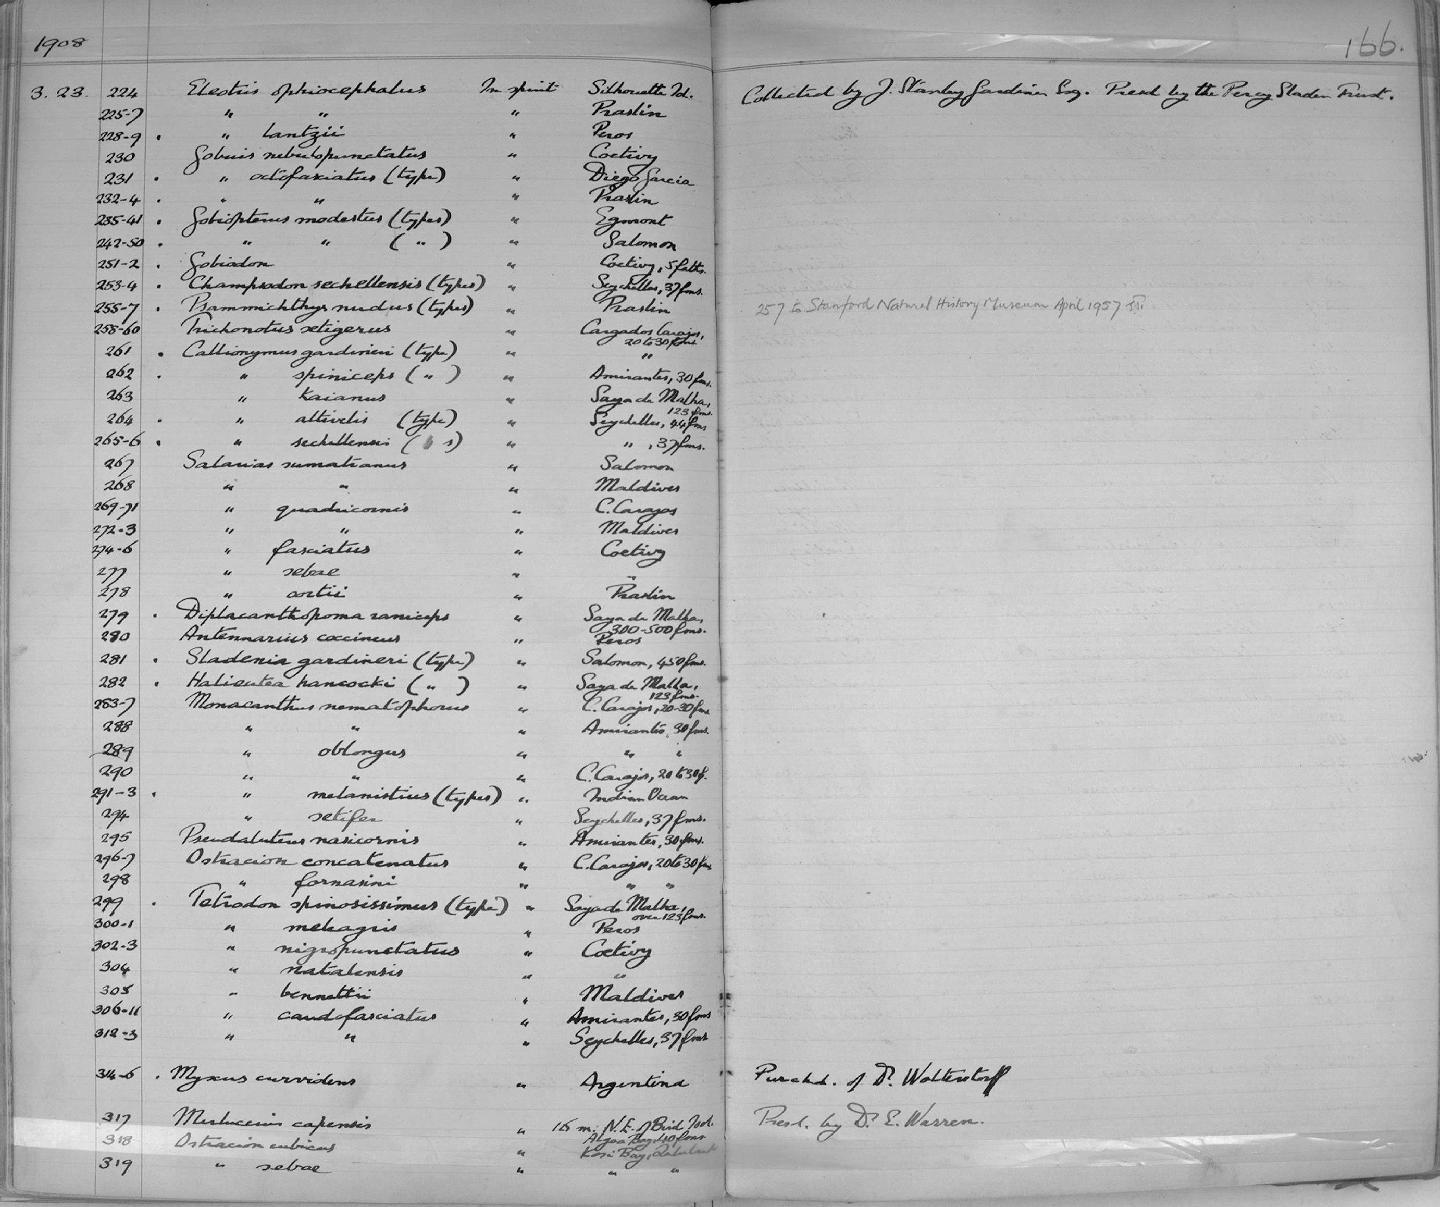 1908
166.
3. 23. 224 Eleotris ophiocephalus In spirit Silhouette Id. Collected by J. Stanley Gardiner Esq. Presd by the Percy Sladen Trust.
225-7 " " " Praslin
228-9 . " lantzii " Peros
230 Gobius nebulopunctatus " Coetivy
231 . " octofasciatus (type) " Diego Garcia
232-4 . " " " Praslin
235-41 . Gobiopterus modestus (types) " Egmont
242-50 . " " ( " ) " Salomon
251-2 . Gobiodon " Coetivy, 5 faths.
253-4 . Champsodon sechellensis (types) " Seychelles, 37 fms.
255-7 . Psammichthys nudus (types) " Praslin 257 to Stanford Natural History Museum April 1957
258-60 Trichonotus setigerus " Cargados Carajos,
20 to 30 fms.
261 . Callionymus gardineri (type) " "
262 . " spiniceps ( " ) " Amirantes, 30 fms.
263 " kaianus " Saya de Malha,
123 fms.
264 . " altivelis (type) " Seychelles, 44 fms
265-6 . " sechellensis ( s) " " , 37 fms.
267 Salarias sumatranus " Salomon
268 " " " Maldives
269-71 " quadricornis " C. Carajos
272-3 " " " Maldives
274-6 " fasciatus " Coetivy
277 " sebae " "
278 " cortii " Praslin
279 . Diplacanthopoma raniceps " Saya de Malha,
300-500 fms.
280 Antennarius coccineus " Peros
281 . Sladenia gardineri (type) " Salomon, 450 fms.
282 . Halieutea hancocki ( " ) " Saya de Malha,
123 fms.
283-7 Monacanthus nematophorus " C. Carajos, 20-30 fms
288 " " " Amirantes, 30 fms.
289 " oblongus " " "
290 " " " C. Carajos, 20 to 30 f.
291-3 . " melanistius (types) " Indian Ocean
294 " setifer " Seychelles, 37 fms.
295 Pseudaluteus nasicornis " Amirantes, 30 fms.
296-7 Ostracion concatenatus " C. Carajos, 20 to 30 fm
298 " fornasini " " "
299 . Tetrodon spinosissimus (type) " Saya de Malha,
over 123 fms.
300-1 " meleagris " Peros
302-3 " nigropunctatus " Coetivy
304 " natalensis " "
305 " bennettii " Maldives
306-11 " caudofasciatus " Amirantes, 30 fms
312-3 " " " Seychelles, 37 fms
314-6 . Myxus curvidens " Argentina Purchd. of Dr. Wolterstorff
317 Merluccius capensis " 16 m. N.E. of Bird Isd. Presd. by Dr. E. Warren.
Algoa Bay, 40 fms
318 Ostracion cubicus " Kosi Bay, Zululand
319 " sebae " " "